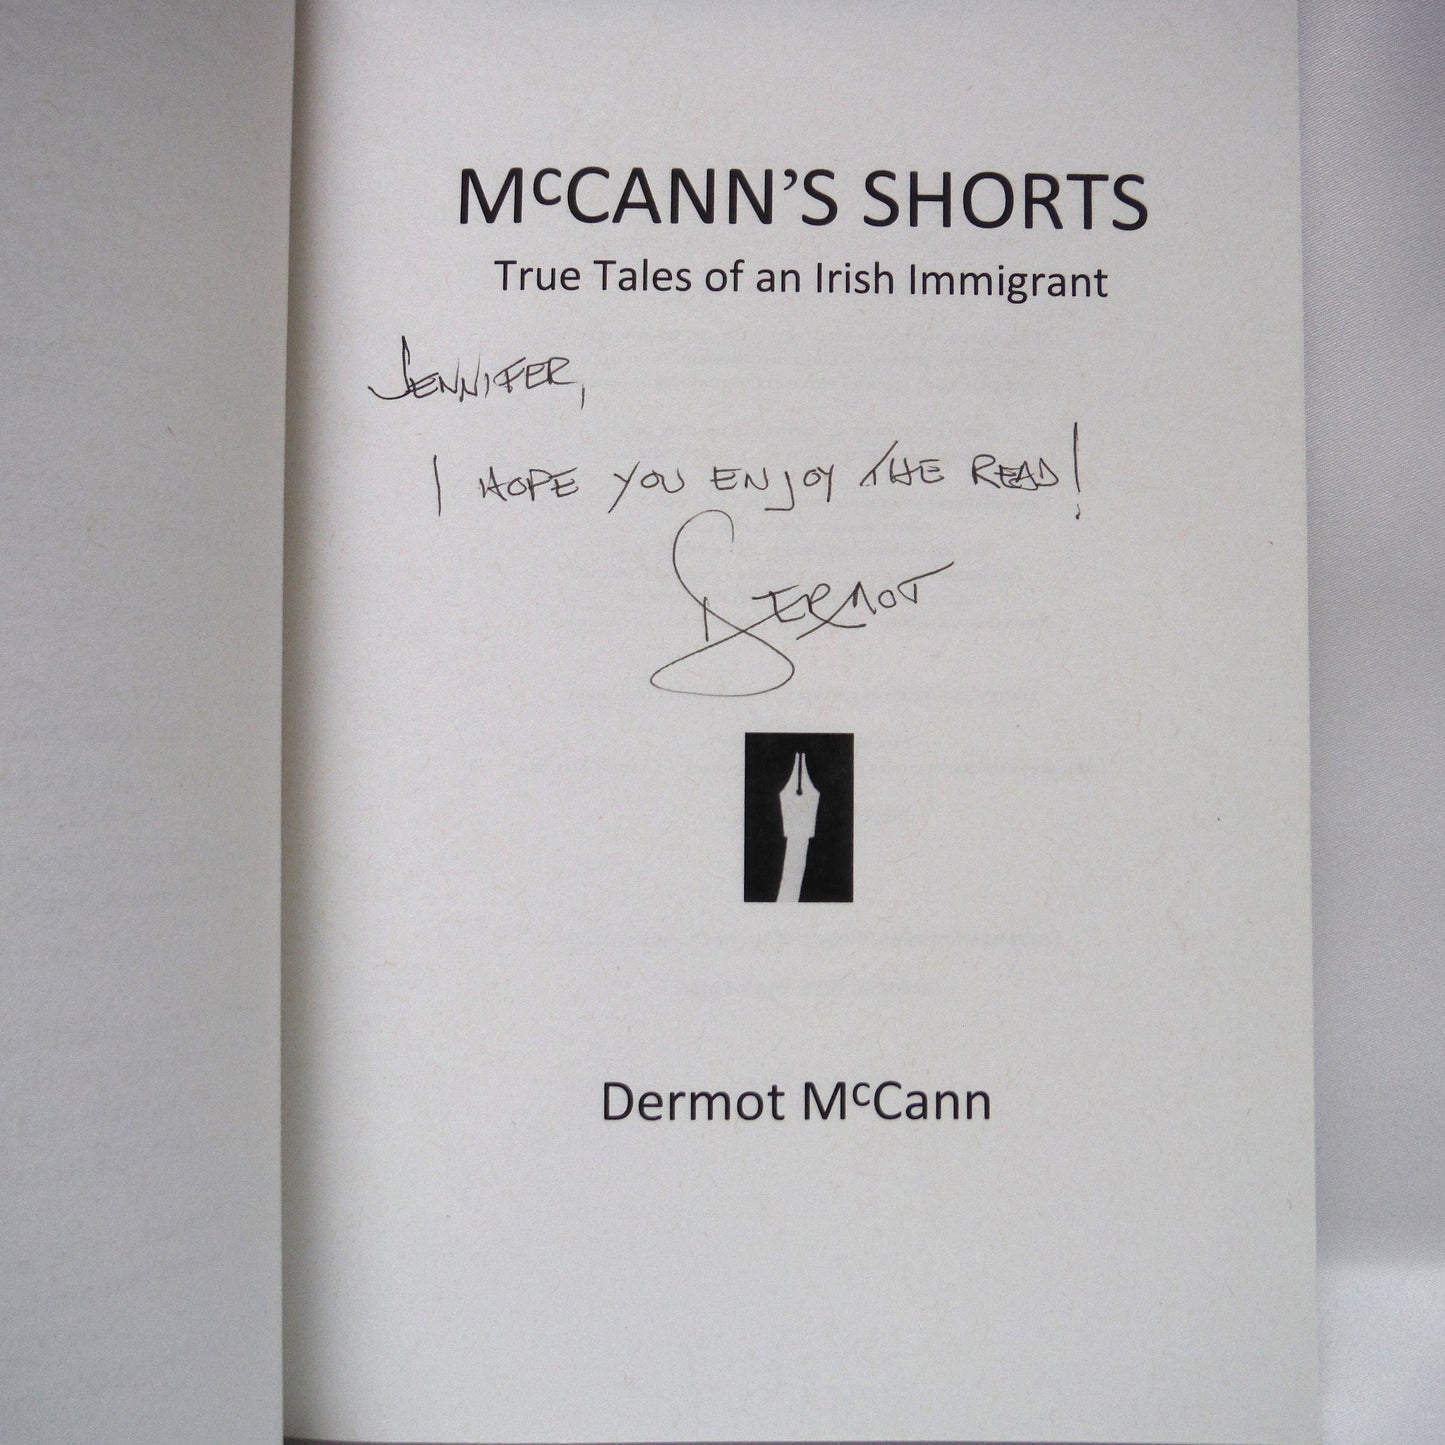 McCANN'S SHORTS
True Tales of an Irish Immigrant
JENNIFER,
I HOPE YOU ENJOY THE READ!
DERMOT
Dermot McCann